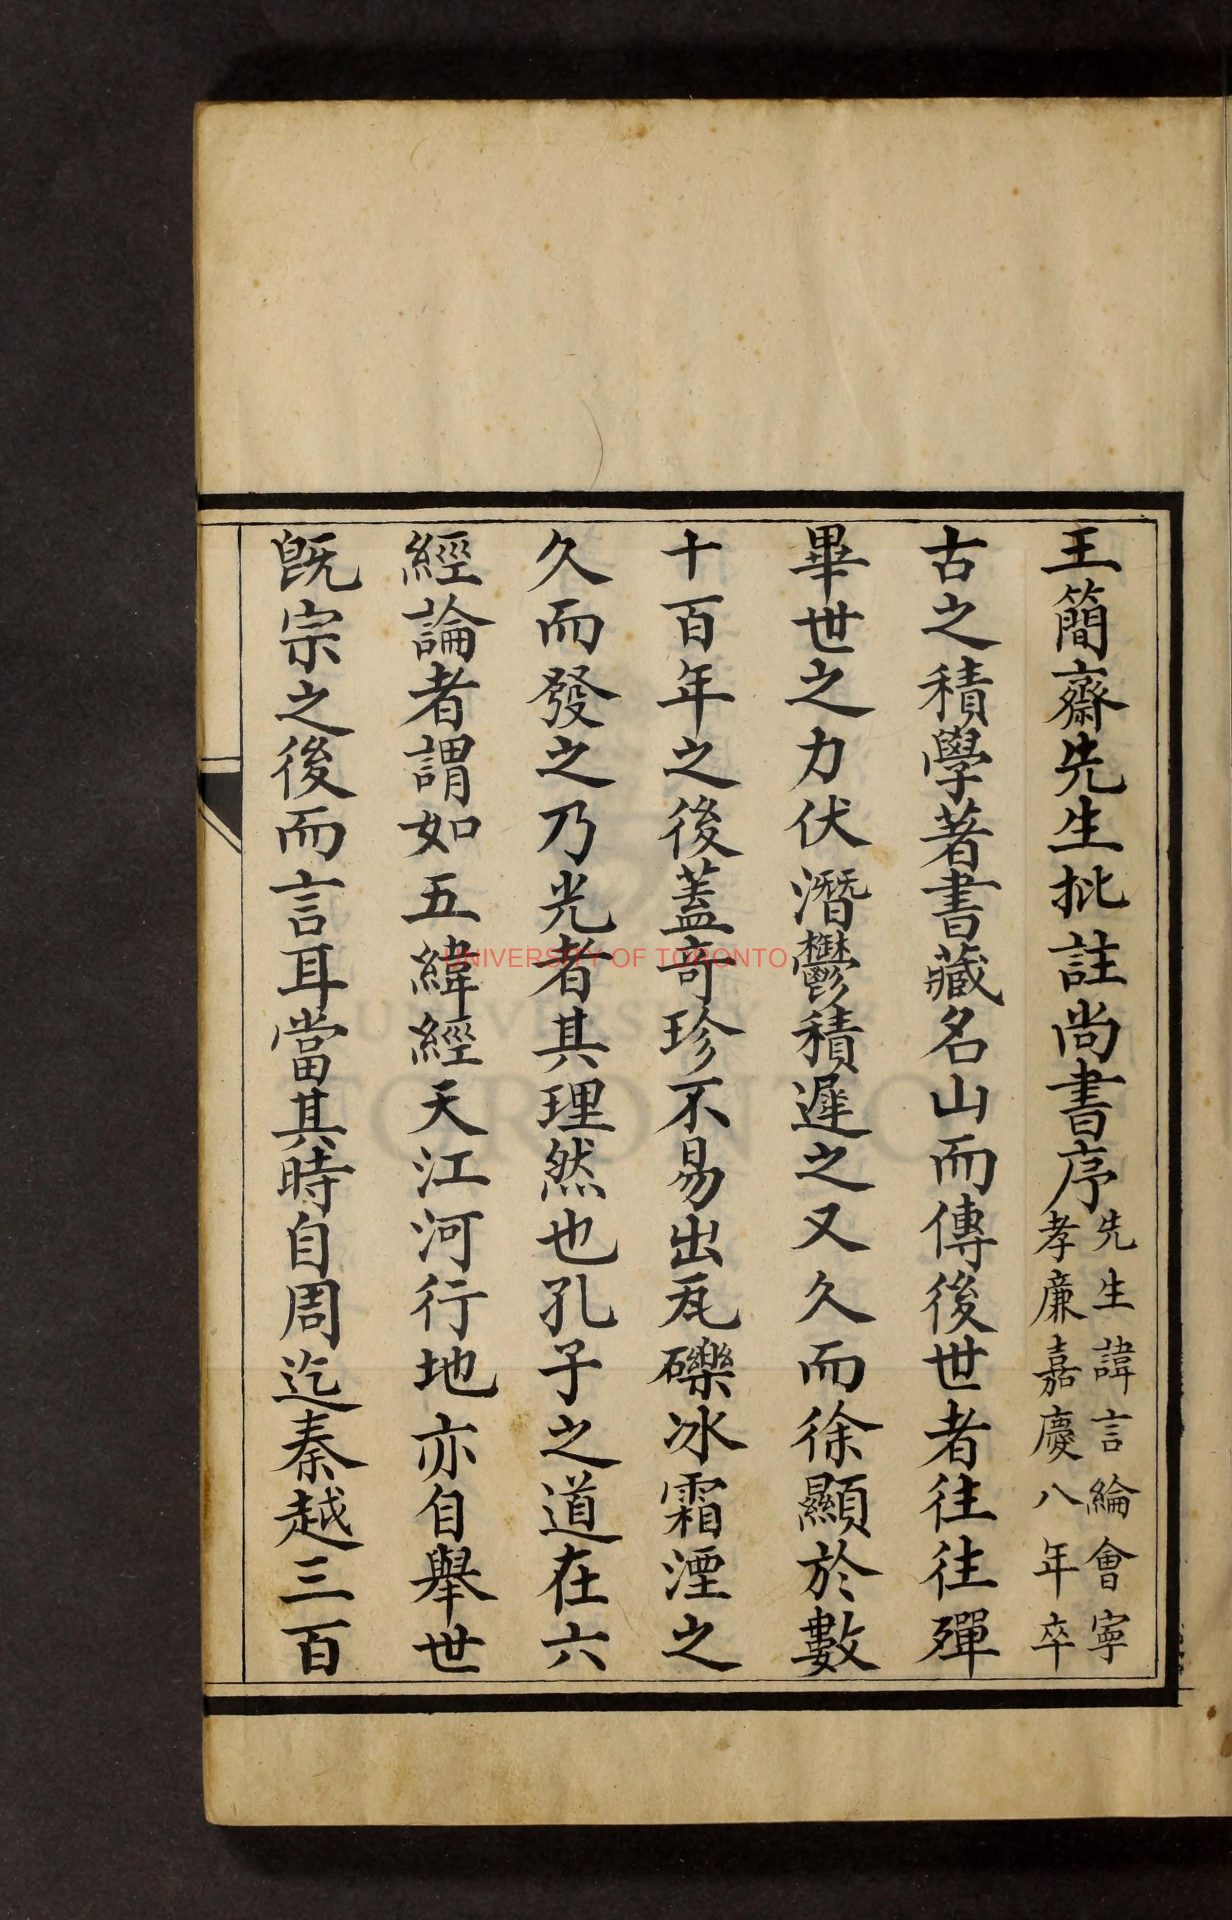 王簡齋先生批註尚書序先生諱言綸會寧孝廉嘉慶八年卒
古之積學著書藏名山而傳後世者往往殫
畢世之力伏潛鬱積遲之又久而徐顯於數
十百年之後蓋奇珍不易出瓦礫冰霜湮之
久而發之乃光者其理然也孔子之道在六
經論者謂如五緯經天江河行地亦自舉世
旣宗之後而言耳當其時自周迄秦越三百
UNIVERSITY OF TORONTO
UNIVERSITY OF
TORONTO